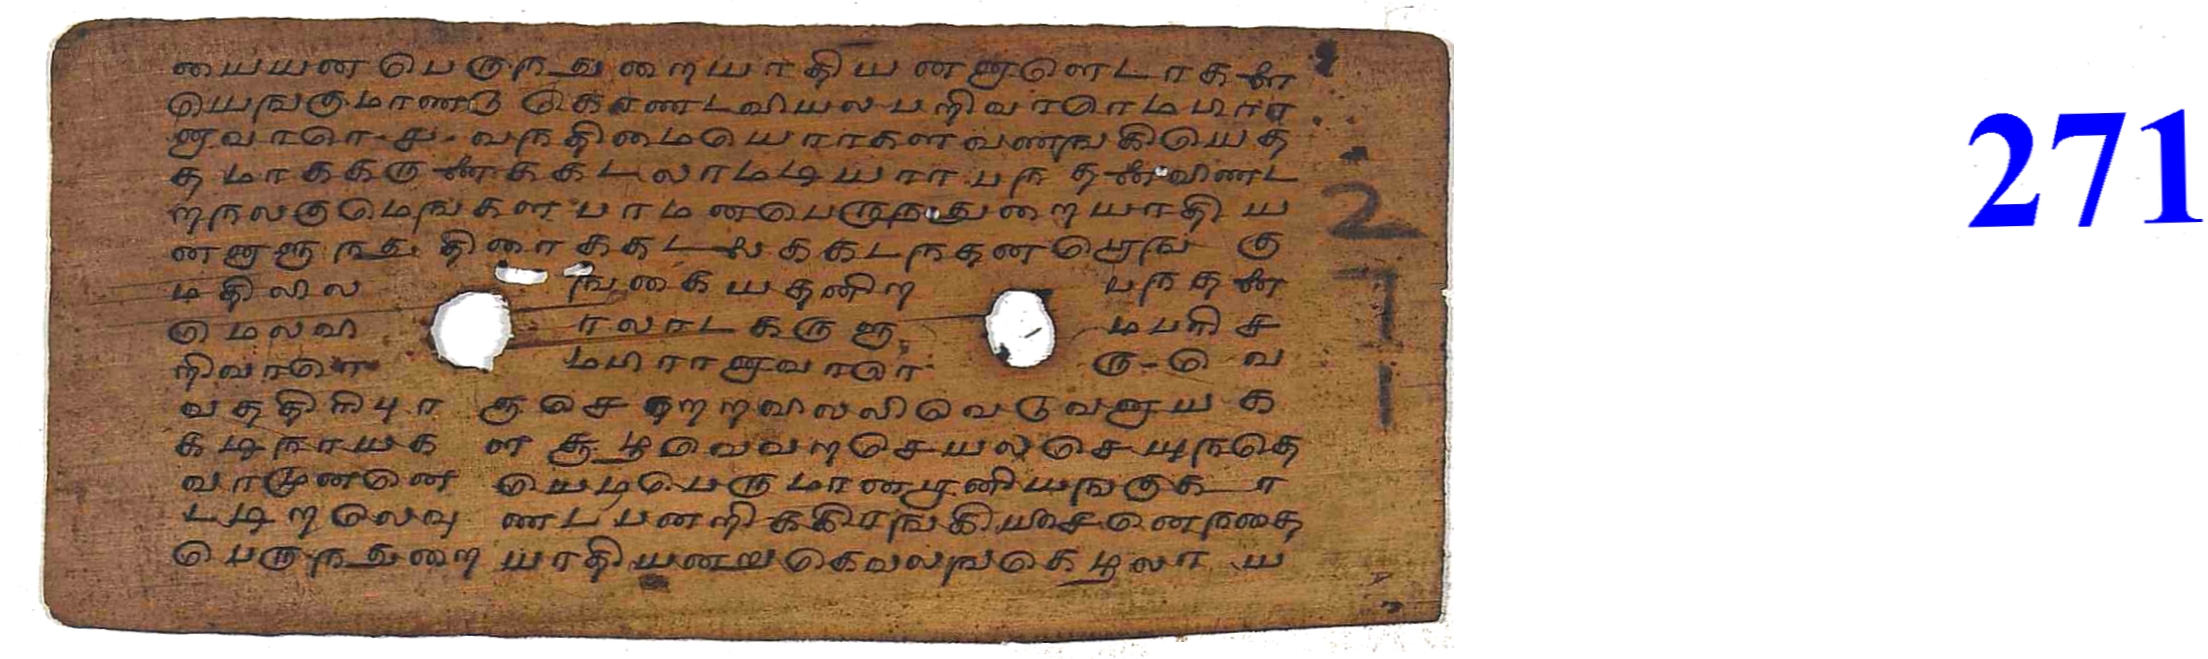 யையன பெருந துறையாதியனனாளெடாகளை
யெஙகுமாணடு கொணடவியலபறிவாரெமபிரா
னாவாரெ-௪-வநதிமையொரகளவணஙகியெத
தமாககருணைககடலாமடியாரபநதனைவிணட
றநலகுமெஙகளபரமனபெருநதுறையாதிய
னனாளுநது திரைககடலைககடநதனறொஙகு
மதிலில ஙகையதனிற பநதணை
மெலவி ரலாடகருளு மபரிச
றிவாரெ மபிரானாவாரெ ரு-வெ
வததிரிபுர ஞசெறறவிலலிவெடுவனாயக
கடிநாயக ள சூழவெவறசெயலசெயயுநதெ
வரமுனனெ யெமபெருமானமுனியஙகுகா
டடிறலெவு ணடபனறிககிரஙகியீசனெநதை
பெருநதுறை யாதியனறுகெவலஙகெழலாய